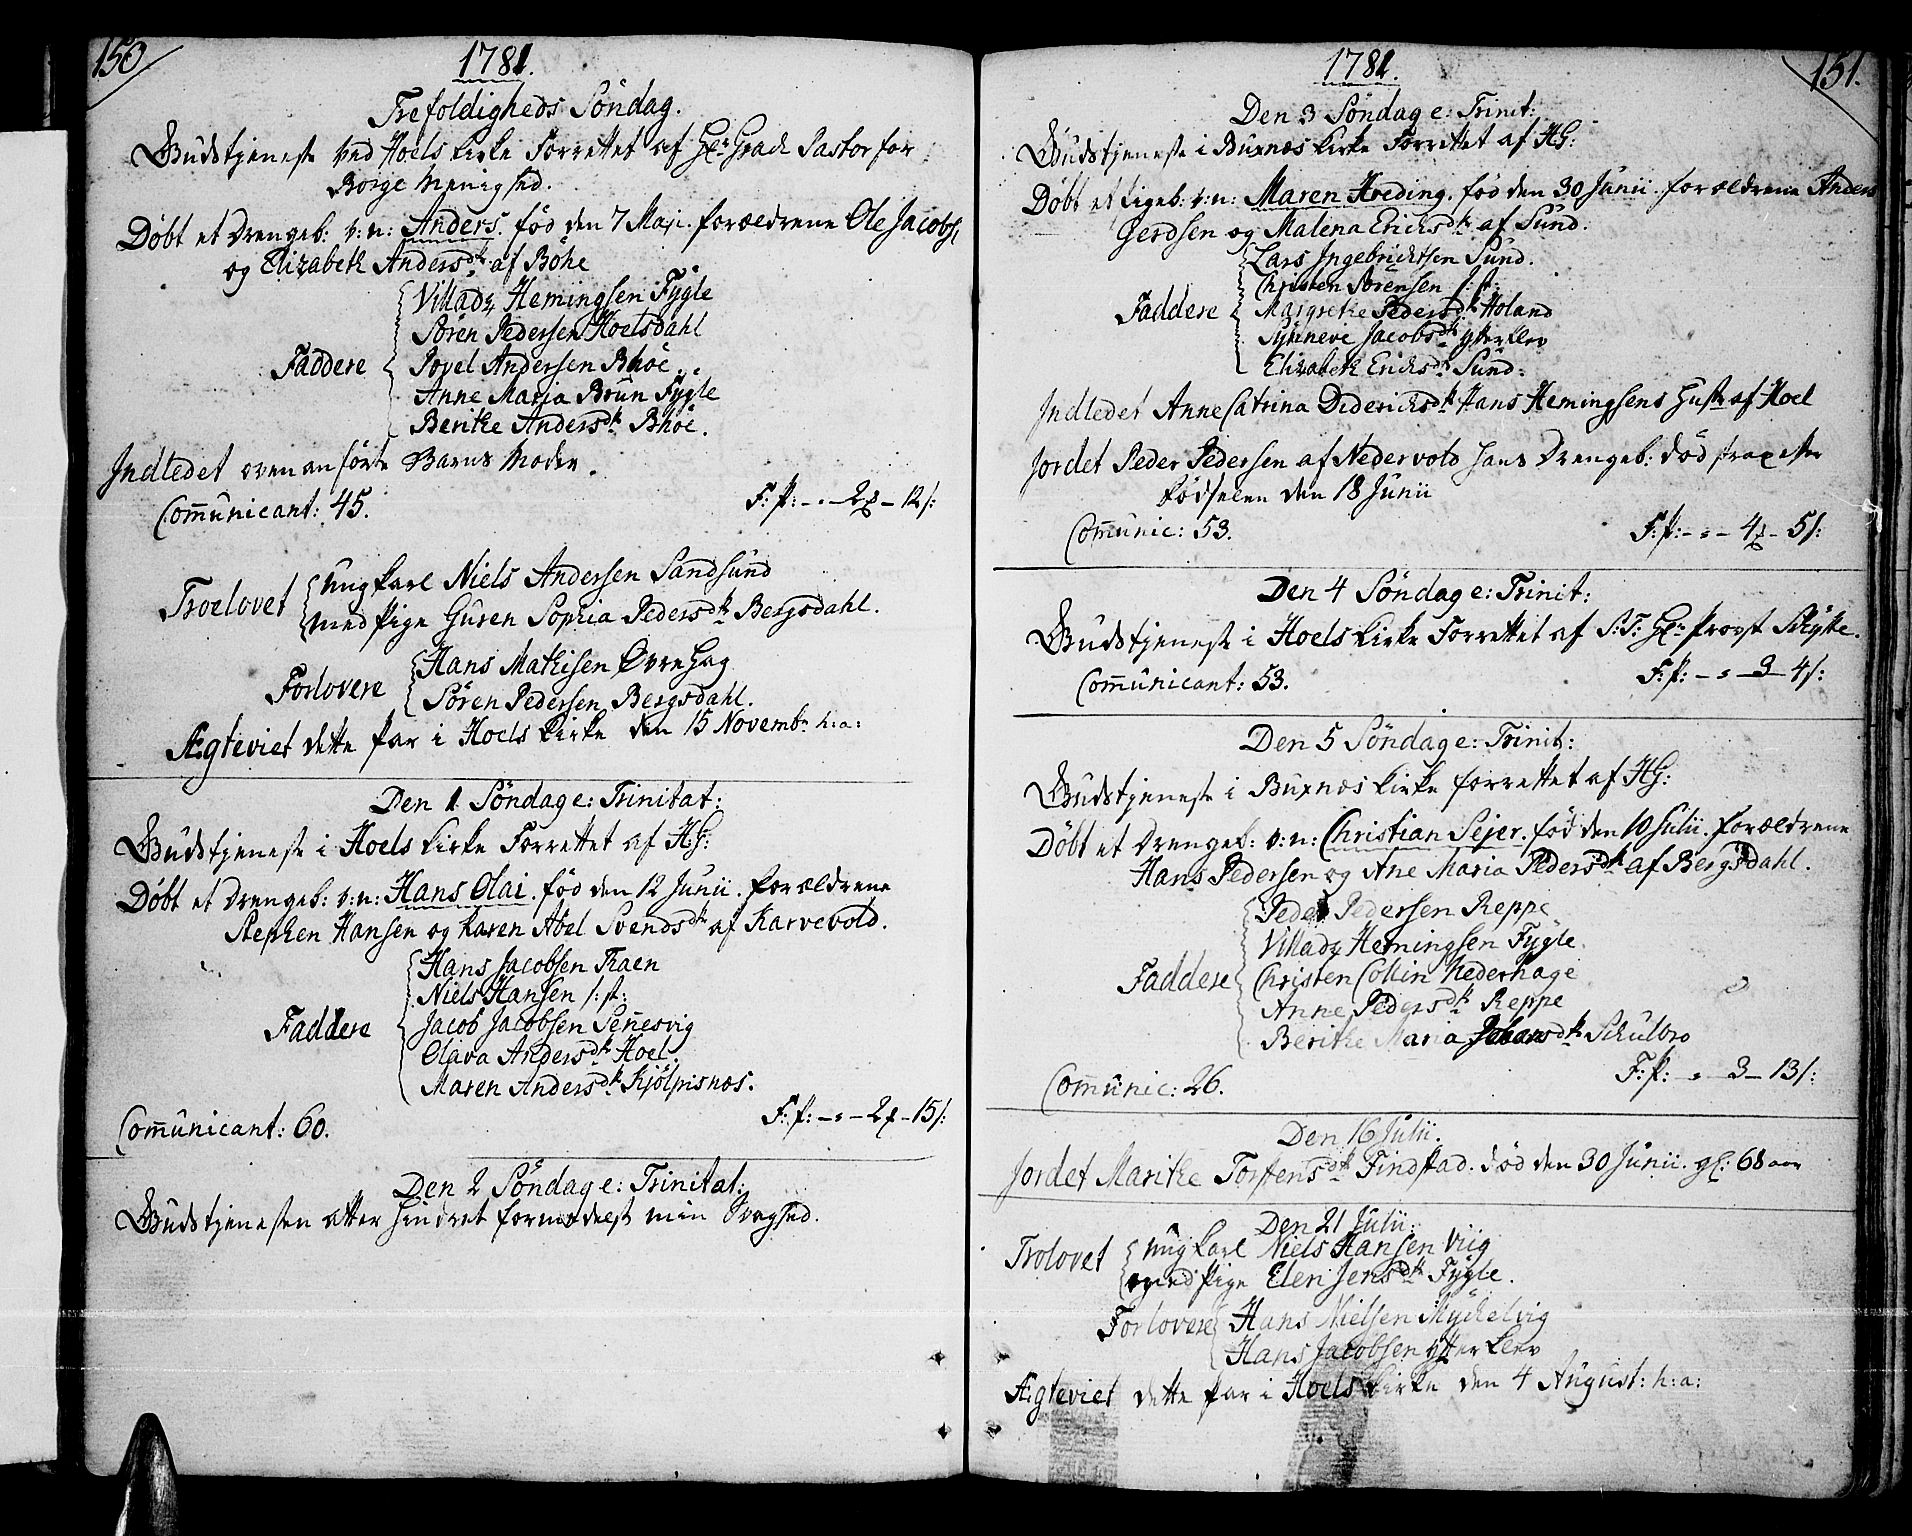 150
1781.
Trefoldigheds Söndag.
Gudstjeneste ved Hoels Kirke Forrettet af Hr: Grack Pastor for
Borge Menighed.
Döbt et Drengeb: v:n: Anders. föd den 7 Maji. forældrene Ole Jacobs:
og Elizabeth Andersdtr af Böhe
Villadz Hemingsen Fÿgle
Sören Pedersen Hoelsdahl
Faddere Povel Andersen Bhöe
Anne Maria Brun Fÿgle
Berithe Andersdtr Bhöe.
Indledet ovenanförte Barns Moder.
Com̄unicant: 45. F:p: - " - 2 - 12 s:
Troelovet Ungkarl Niels Andersen Sandsund
med Pige Guren Sophia Pedersdtr Bergsdahl.
Forlovere Hans Mathisen Øvrehag
Sören Pedersen Bergsdahl.
Ægteviet dette par i Hoels Kirke den 15 Novembr h:a:
Den 1 Söndag e: Trinitat:
Gudstjeneste i Hoels Kirke Forrettet af HG:
Döbt et Drengeb: v:n: Hans Olai. föd den 12 Junii. forældrene
Stephen Hansen og Karen Abel Svendsdtr af Karvevold.
Hans Jacobsen Traen
Niels Hansen s:st:
Faddere Jacob Jacobsen Sen̄esvig
Olava Andersdtr Hoel.
Maren Andersdtr Kjölpisnæs.
Com̄unicant: 60. F:p: - " - 2 - 15 s:
Den 2 Söndag e: Trinitat:
Gudstjenesten atter hindret formedelst min Svaghed.
151.
1781.
Den 3 Söndag e: Trinit:
Gudstjeneste i Buxnæs Kirke Forrettet af HG:
Döbt et Pigeb: v:n: Maren Hveding. föd den 30 Junii. forældrene Anders
Gerdsen og Malena Ericksdtr af Sund.
Lars Ingebrichtsen Sund.
Christen Sörensen s:st:
Faddere Margrethe Pedersdtr Holand
Synneve Jacobsdtr Ytterklev
Elizabeth Ericksdtr Sund.
Indledet Anne Catrina Diderichsdtr Hans Hemingsens Hustr af Hoel
Jordet Peder Pedersen af Nedervold hans Drengeb: död strax efter
födselen den 18 Junii
Com̄unic: 53. F:p: - " - 4 - 5 s:
Den 4 Söndag e: Trinit:
Gudstjeneste i Hoels Kirke Forrettet af S:T: Hr: Provst Schytte.
Com̄unicant: 53. F:p: - " - 3 - 4 s:
Den 5 Söndag e: Trinit:
Gudstjeneste i Buxnæs Kirke forrettet af HG:
Döbt et Drengeb: v:n: Christian Sejer. föd den 10 Julii. forældrene
Hans Pedersen og Ane Maria Pedersdtr af Bergsdahl.
Peder Pedersen Reppe
Villadz Hemingsen Fÿgle.
Faddere Christen Collin Nederhage
Anne Pedersdtr Reppe
Berithe Maria Johansdtr Schulbro
Com̄unic: 26. F:p: - " - 3 - 13 s:
Den 16 Julii.
Jordet Marithe Torstensdtr Findstad. död den 30 Junii. gl: 68 aar
Den 21 Julii:
Trolovet Ungkarl Niels Hansen Viig
med Pige Elen Jensdtr Fÿgle.
Forlovere Hans Nielsen Myckelvig
Hans Jacobsen Ytterklev
Ægteviet dette par i Hoels Kirke den 4 August: h:a: